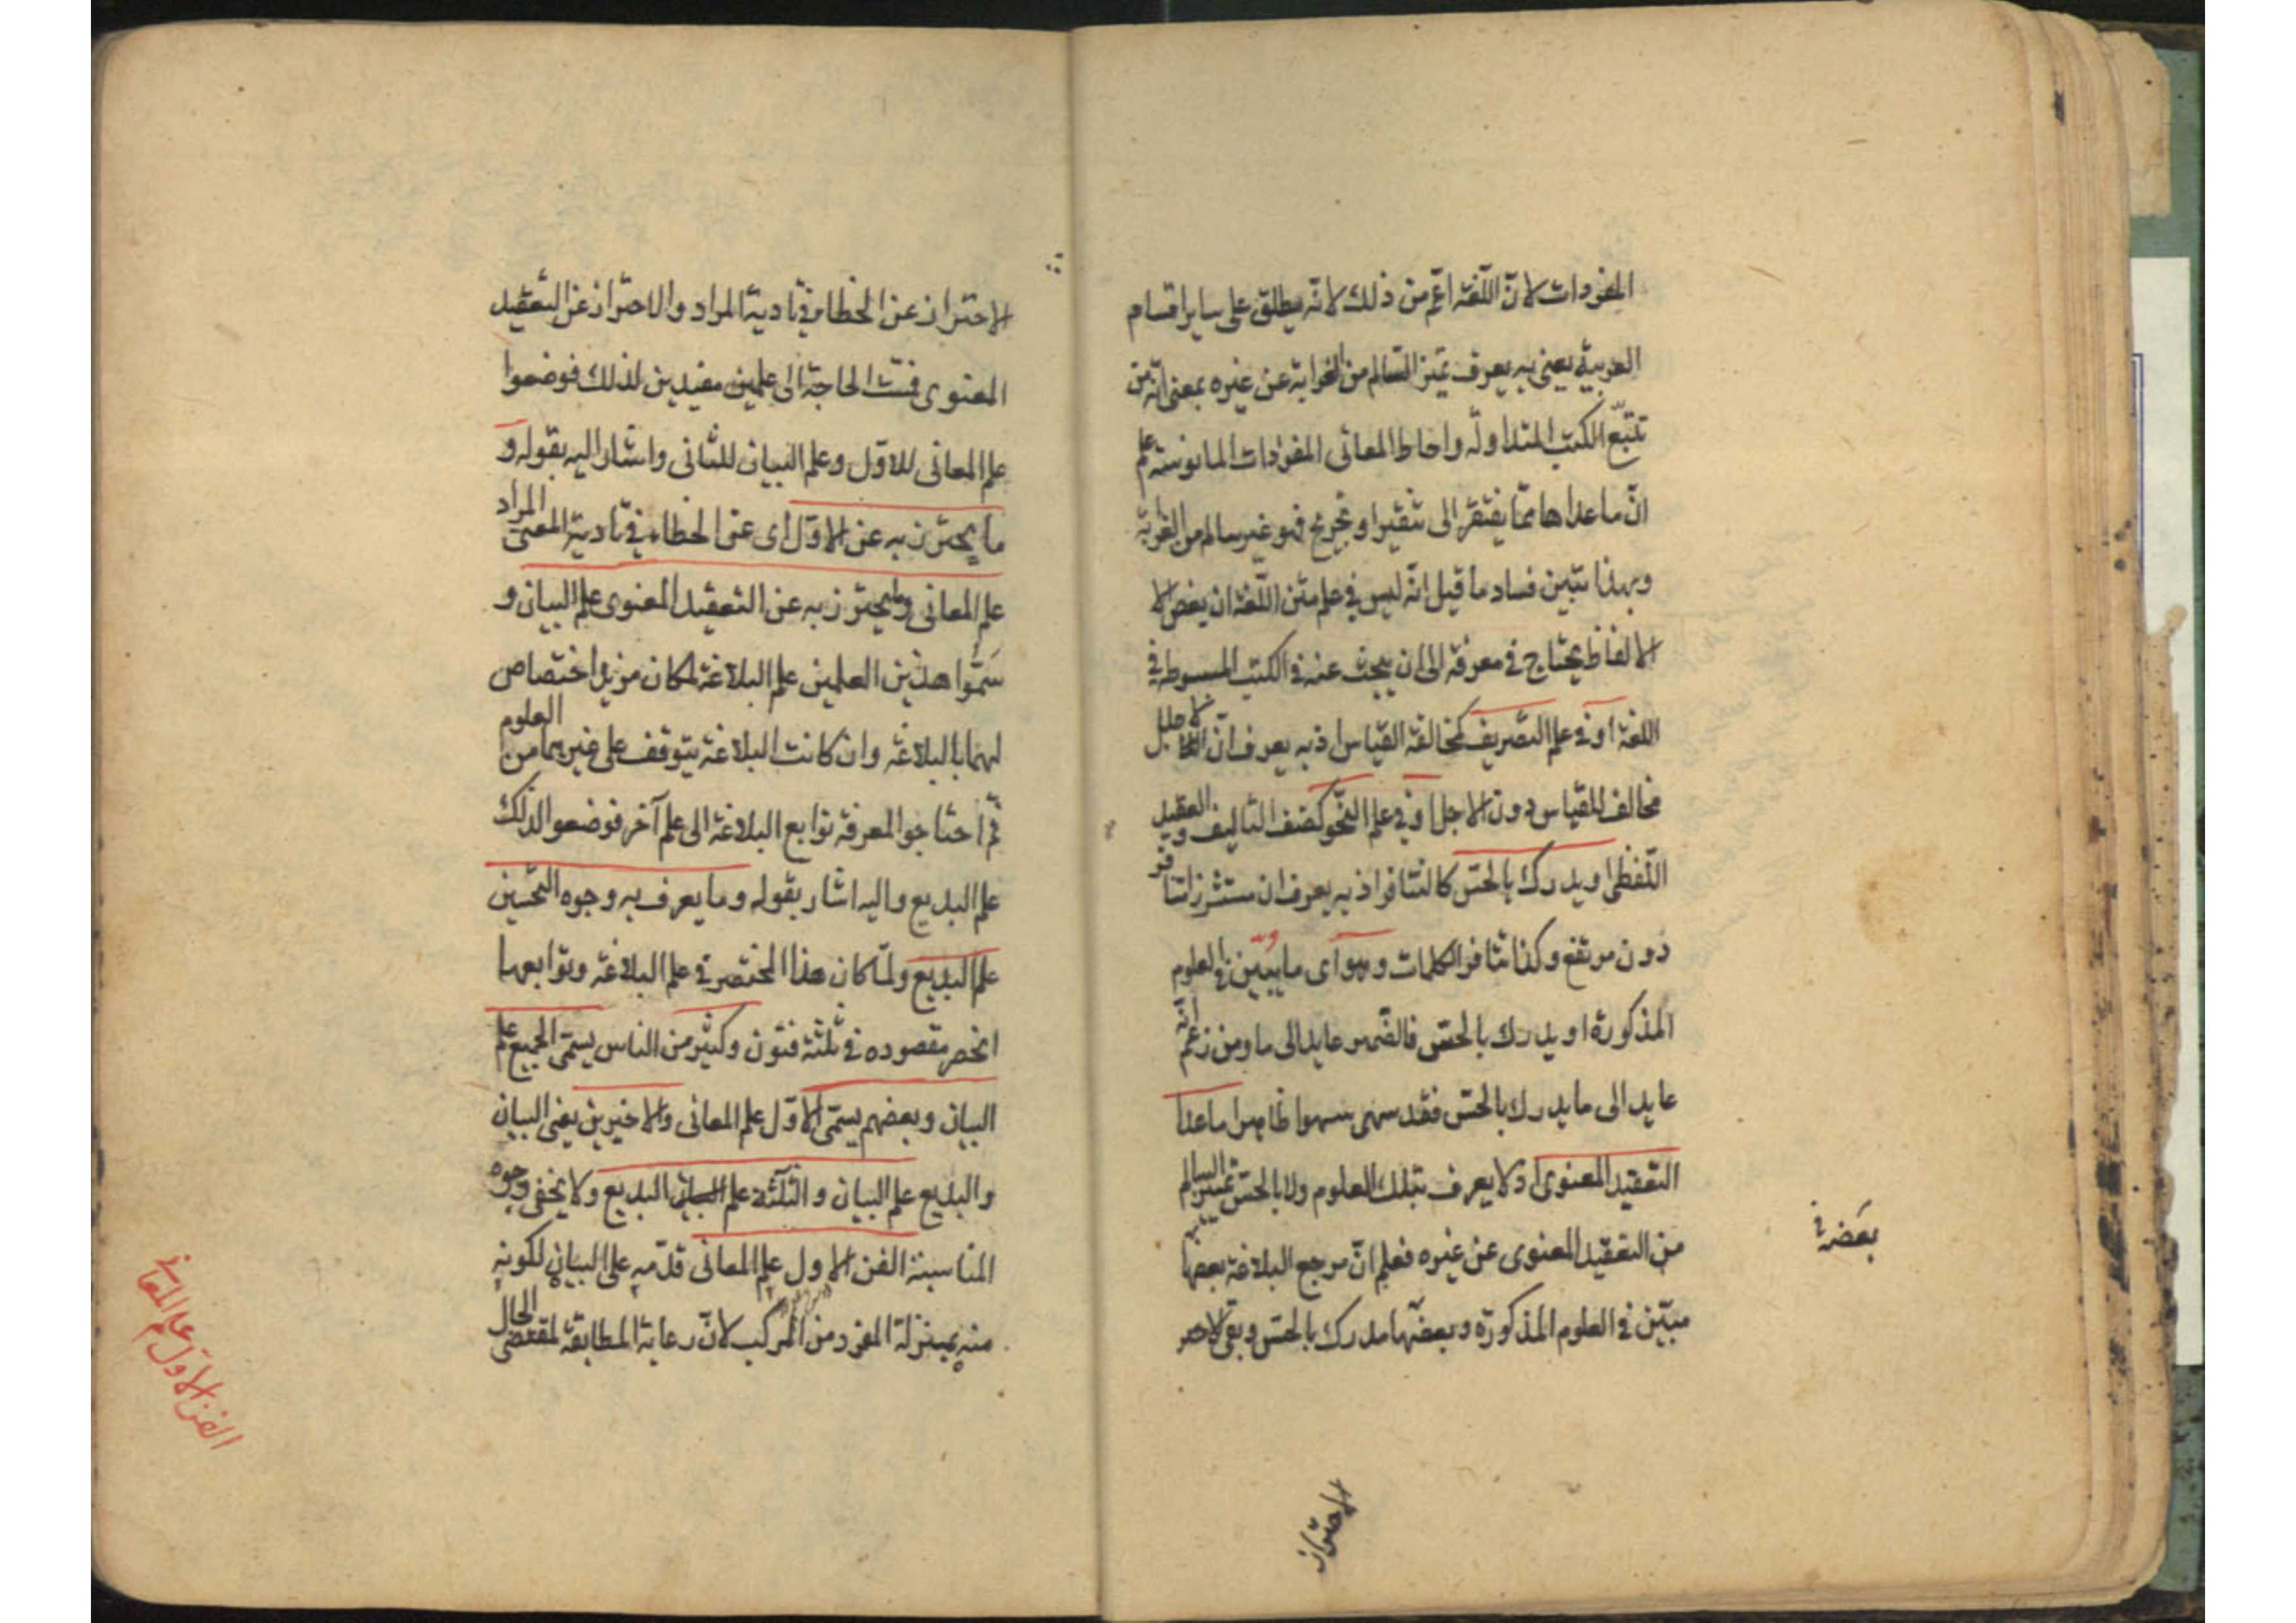 المفردات لانّ اللّغة اعّم من ذلك لانّه يطلق على ساير اقسام
العربية يعنى به يعرف تميّز السّالم من الغرابة عن غيره بمعنى انّ من
تتبّع الكتب المتداولة واحاط المعانى المفردات المانوسة علم
انّ ما عداها ممّا يفتقر الى تنقير او تخريج فهو غير سالم من الغرابة
وبهذا تبيّن فساد ما قيل انّه ليس فى علم متن اللّغة ان بعض الا
الالفاظ يحتاج فى معرفته الى ان يبحث عنه فى الكتب المبسوطة فى
اللغة او فى علم التصريف كمخالفة القياس اذ به يعرف انّ الاجلل
مخالف للقياس دون الاجل او فى علم النّحو كضعف التاليف والتعقيد
اللّفظى او يدرك بالحسّ كالتنافر اذ به يعرف ان مستشزرا متنافر
دون مرتفع وكذا تنافر الكلمات وهو اى ما يبيّن فى العلوم
المذكورة او يدرك بالحسّ فالضّمير عايد الى ما ومن زعم انّه
عايد الى ما يدرك بالحسّ فقد سهى سهوا ظاهرا ما عدا
التعقيد المعنوى اذ لا يعرف بتلك العلوم ولا بالحسّ تمييز السالم
من التعقيد المعنوى عن غيره فعلم انّ مرجع البلاغة بعضها
بعضه فى
مبيّن فى العلوم المذكورة وبعضها مدرك بالحسّ وبقى الاحتر
الاحتراز
الاحتراز عن الخطاء فى تادية المراد والاحتراز عن التعقيد
المعنوى فمسّت الحاجة الى علمين مفيدين لذلك فوضعوا
علم المعانى للاوّل وعلم البيان للثانى واشار اليه بقوله و
ما يحترز به عن الاوّل اى عن الخطاء فى تادية المعنى المراد
علم المعانى وما يحترز به عن التعقيد المعنوى علم البيان و
سمّوا هذين العلمين علم البلاغة لمكان مزيد اختصاص
لهما بالبلاغة وان كانت البلاغة يتوقف على غيرهما من العلوم
ثمّ احتاجوا لمعرفة توابع البلاغة الى علم آخر فوضعوا لذلك
علم البديع واليه اشار بقوله وما يعرف به وجوه التحسين
علم البديع ولمّا كان هذا المختصر فى علم البلاغة وتوابعها
انحصر مقصوده فى ثلثة فنون وكثير من الناس يسمّى الجميع علم
البيان وبعضهم يسمّى الاوّل علم المعانى والاخيرين يعنى البيان
والبديع علم البيان والثلثة علم البديع ولا يخفى وجوه
المناسبة الفن الاول علم المعانى قدّمه على البيان لكونه
منه بمنزلة المفرد من المركب لانّ رعاية المطابقة لمقتضى الحال
الفن الاول علم المعانى